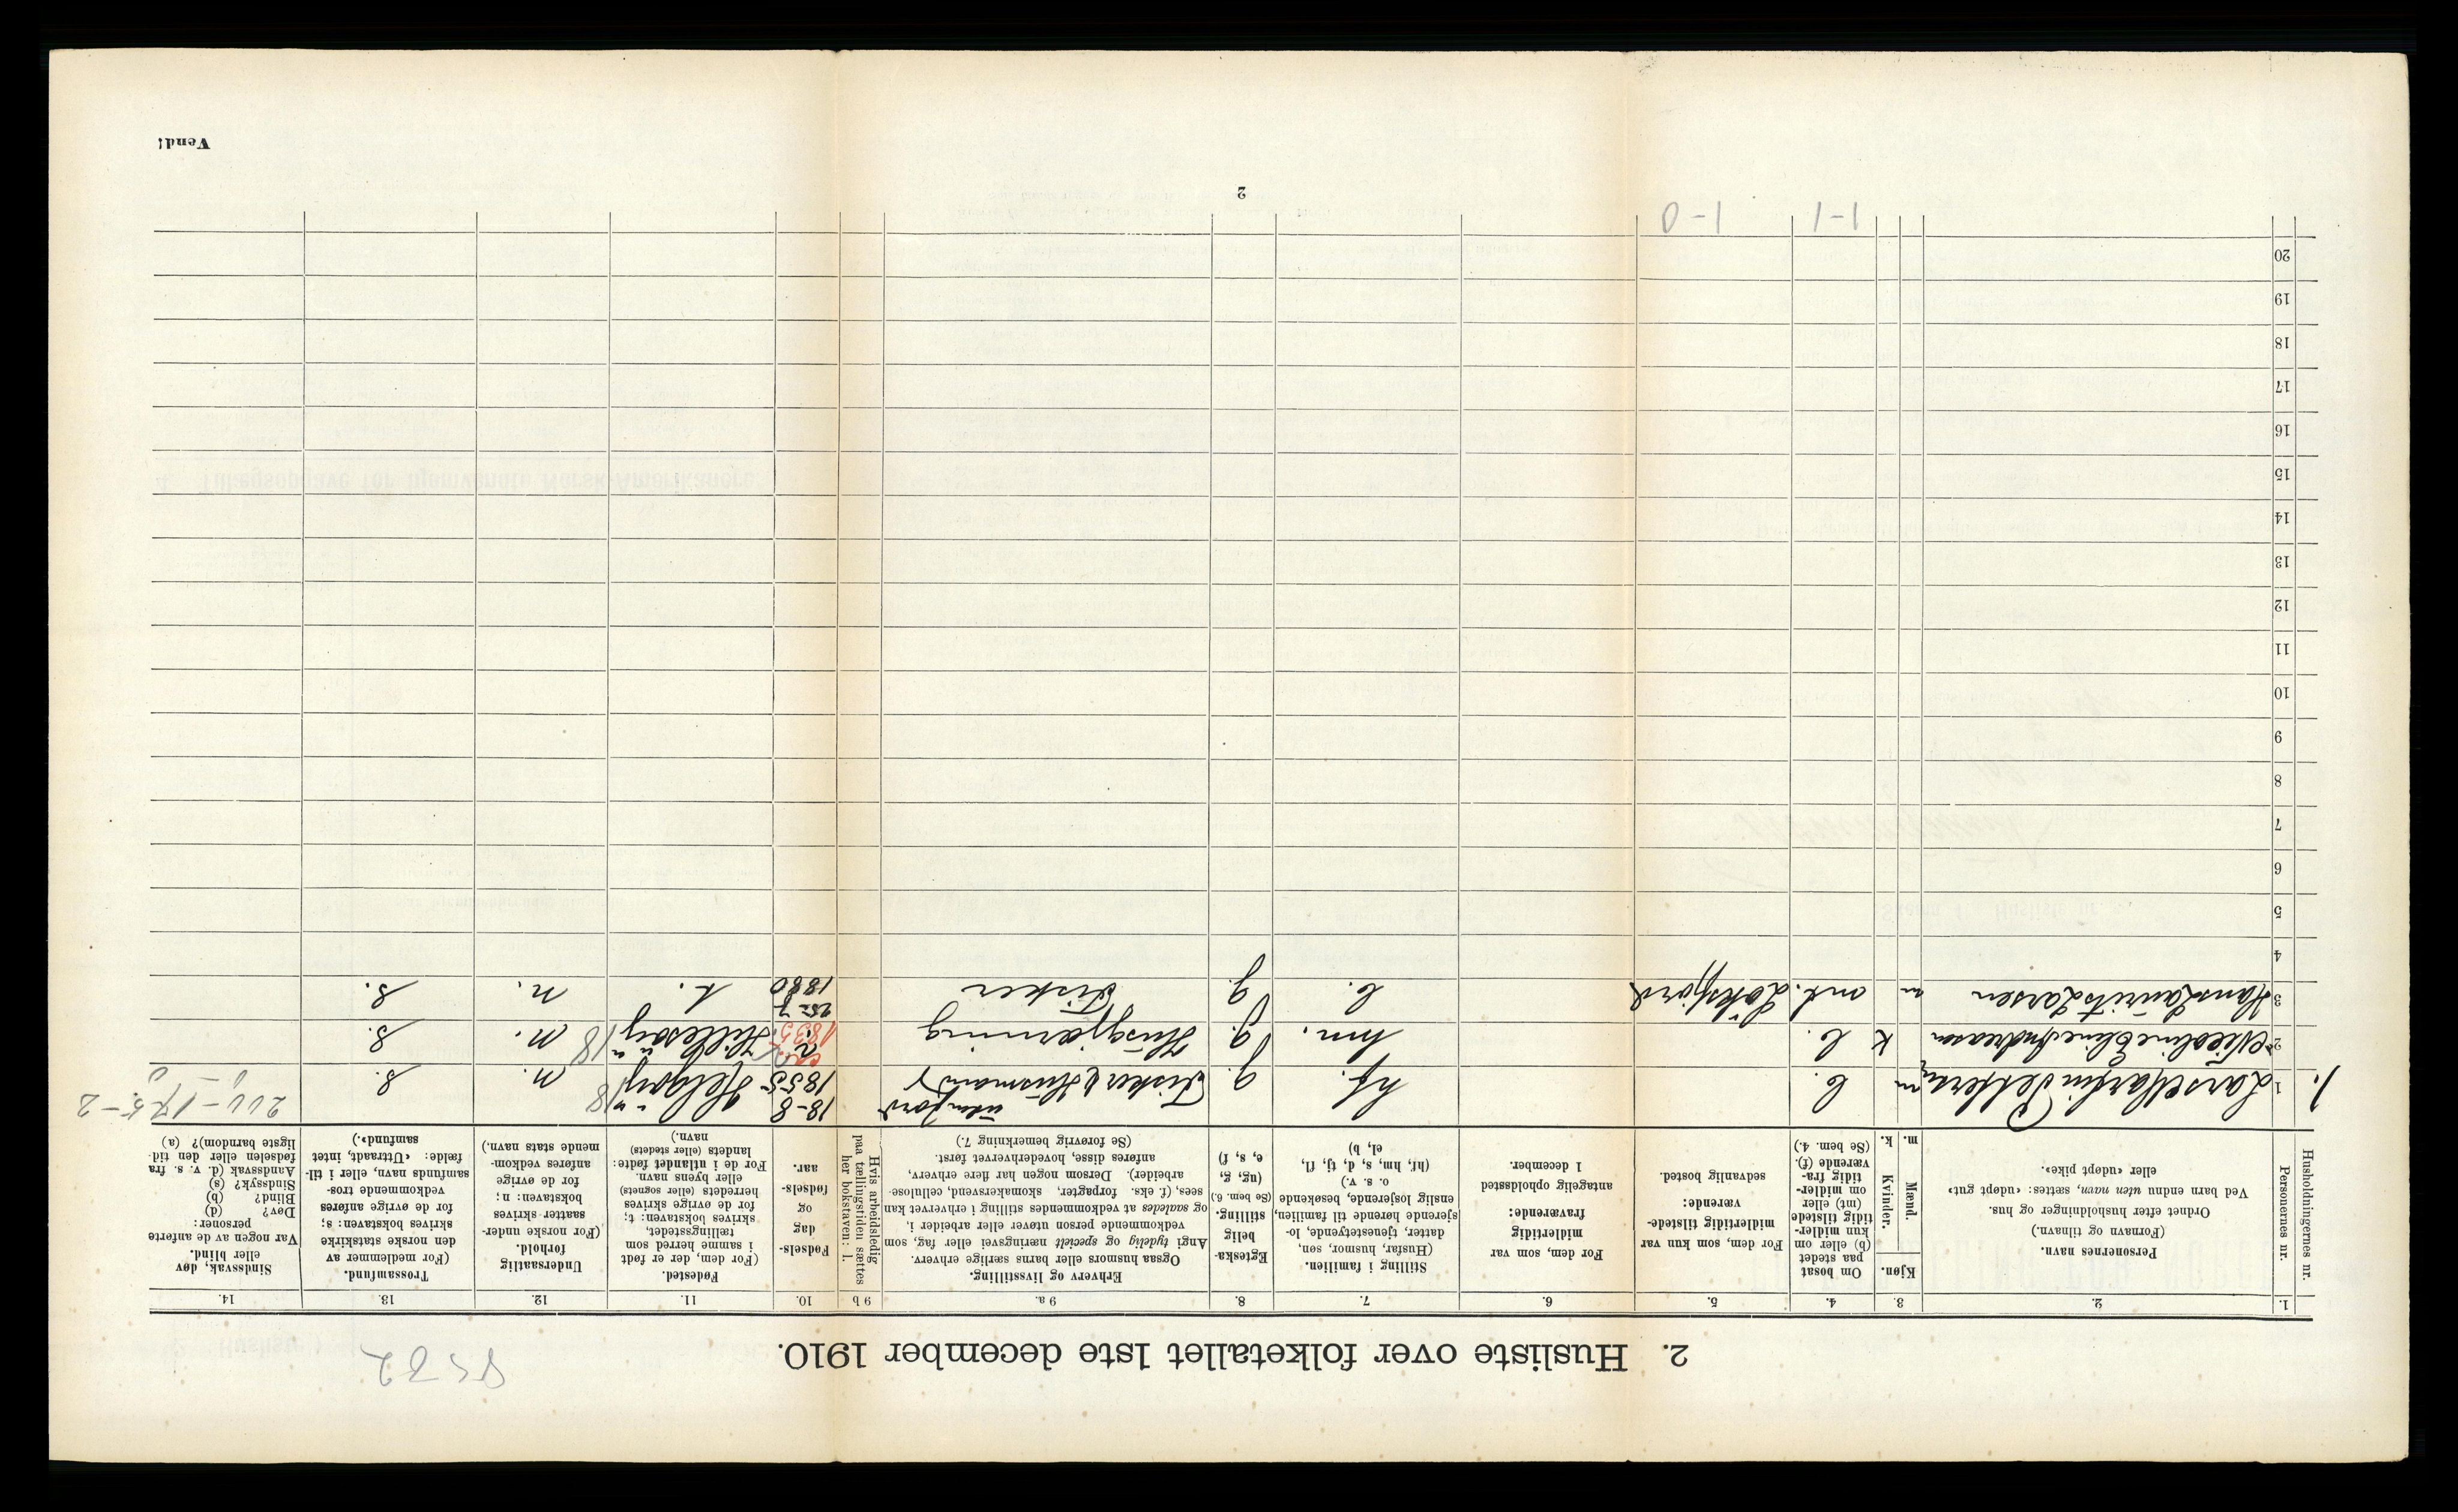 2. Husliste over folketallet 1ste december 1910.
1.
2.
3.
4.
5.
6.
7.
8.
9 a.
9 b
10.
11.
12.
13.
14.
Husholdningernes nr.
Personernes nr.
Personernes navn.
(Fornavn og tilnavn.)
Ordnet efter husholdninger og hus.
Ved barn endnu uten navn, sættes: «udøpt gut»
eller «udøpt pike».
Kjøn.
Mænd.
Kvinder.
m.
k.
Om bosat
paa stedet
(b) eller om
kun midler-
tidig tilstede
(mt) eller
om midler-
tidig fra-
værende (f).
(Se bem. 4.)
For dem, som kun var
midlertidig tilstede-
værende:
sedvanlig bosted.
For dem, som var
midlertidig
fraværende:
antagelig opholdssted
1 december.
Stilling i familien.
(Husfar, husmor, søn,
datter, tjenestetyende, lo-
sjerende hørende til familien,
enslig losjerende, besøkende
o. s. v.)
(hf, hm, s, d, tj, fl,
el, b)
Egteska-
belig
stilling.
(Se bem. 6.)
(ug, g,
e, s, f)
Erhverv og livsstilling.
Ogsaa husmors eller barns særlige erhverv.
Angi tydelig og specielt næringsvei eller fag, som
vedkommende person utøver eller arbeider i,
og saaledes at vedkommendes stilling i erhvervet kan
sees, (f. eks. forpagter, skomakersvend, cellulose-
arbeider). Dersom nogen har flere erhverv,
anføres disse, hovederhvervet først.
(Se forøvrig bemerkning 7.)
Hvis arbeidsledig
paa tællingstiden sættes
her bokstaven: l.
Fødsels-
dag
og
fødsels-
aar.
Fødested.
(For dem, der er født
i samme herred som
tællingstedet,
skrives bokstaven: t;
for de øvrige skrives
herredets (eller sognets)
eller byens navn.
For de i utlandet fødte:
landets (eller stedets)
navn.)
Undersaatlig
forhold.
(For norske under-
saatter skrives
bokstaven: n;
for de øvrige
anføres vedkom-
mende stats navn.)
Trossamfund.
(For medlemmer av
den norske statskirke
skrives bokstaven: s;
for de øvrige anføres
vedkommende tros-
samfunds navn, eller i til-
fælde: «Uttraadt, intet
samfund».)
Sindssvak, døv
eller blind.
Var nogen av de anførte
personer:
Døv? (d)
Blind? (b)
Sindssyk? (s)
Aandssvak (d. v. s. fra
fødselen eller den tid-
ligste barndom)? (a)
1. 1 Lars Martin Pettersen m b. hf. g. Fisker & Husmand 18-8 1855 Helgøy n. s.
2 Nicoline Eline Andreasen k b. hm. g. Husgjærning 1835 Hillesøy n. s.
3 Hans Laurits Larsen m mt. Løksfjord b. g. Fisker 25-7 1880 t. n. s.
4
5
6
7
8
9
10
11
12
13
14
15
16
17
18
19
20
1-1
1-0
2
Vend!